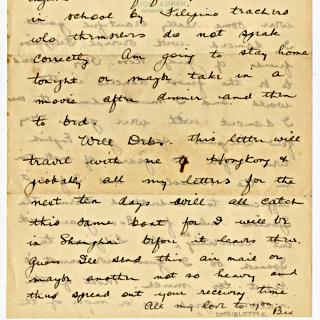 in school by Filipino teachers
who themselves do not speak
correctly. Am going to stay home
tonight or maybe take in a
movie after dinner and then
to bed.
Well Debs. this letter will
travel with me to Hongkong &
probably all my letters for the
next ten days will all catch
this same boat for I will be
in Shanghai before it leaves there.
Guess I'll send this air mail or
maybe another not so heavy and
thus spread out your receiving time
All my love to you